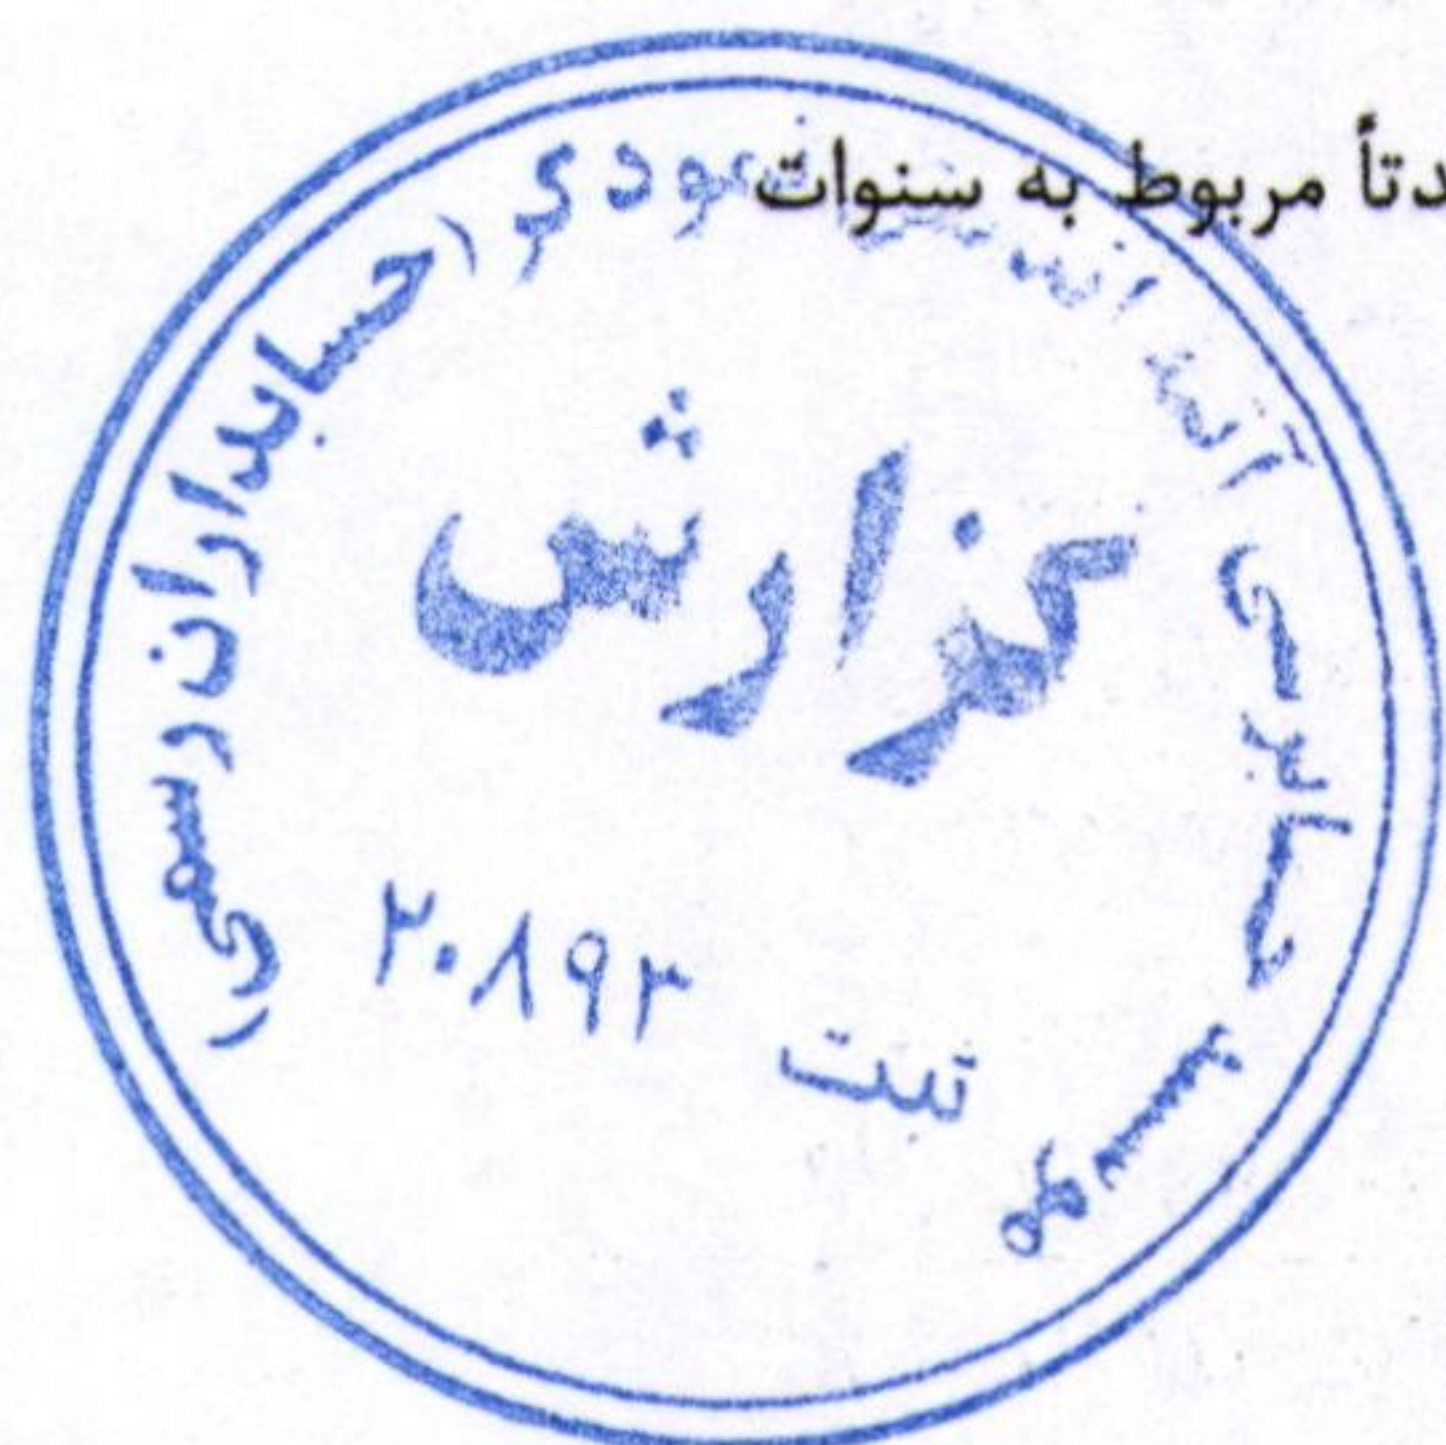 دتاً مربوط به سنوات
موسسه حسابرسی آزمو
نمودی (حسابداران رسمی)
گزارش
ثبت ۲۰۸۹۳